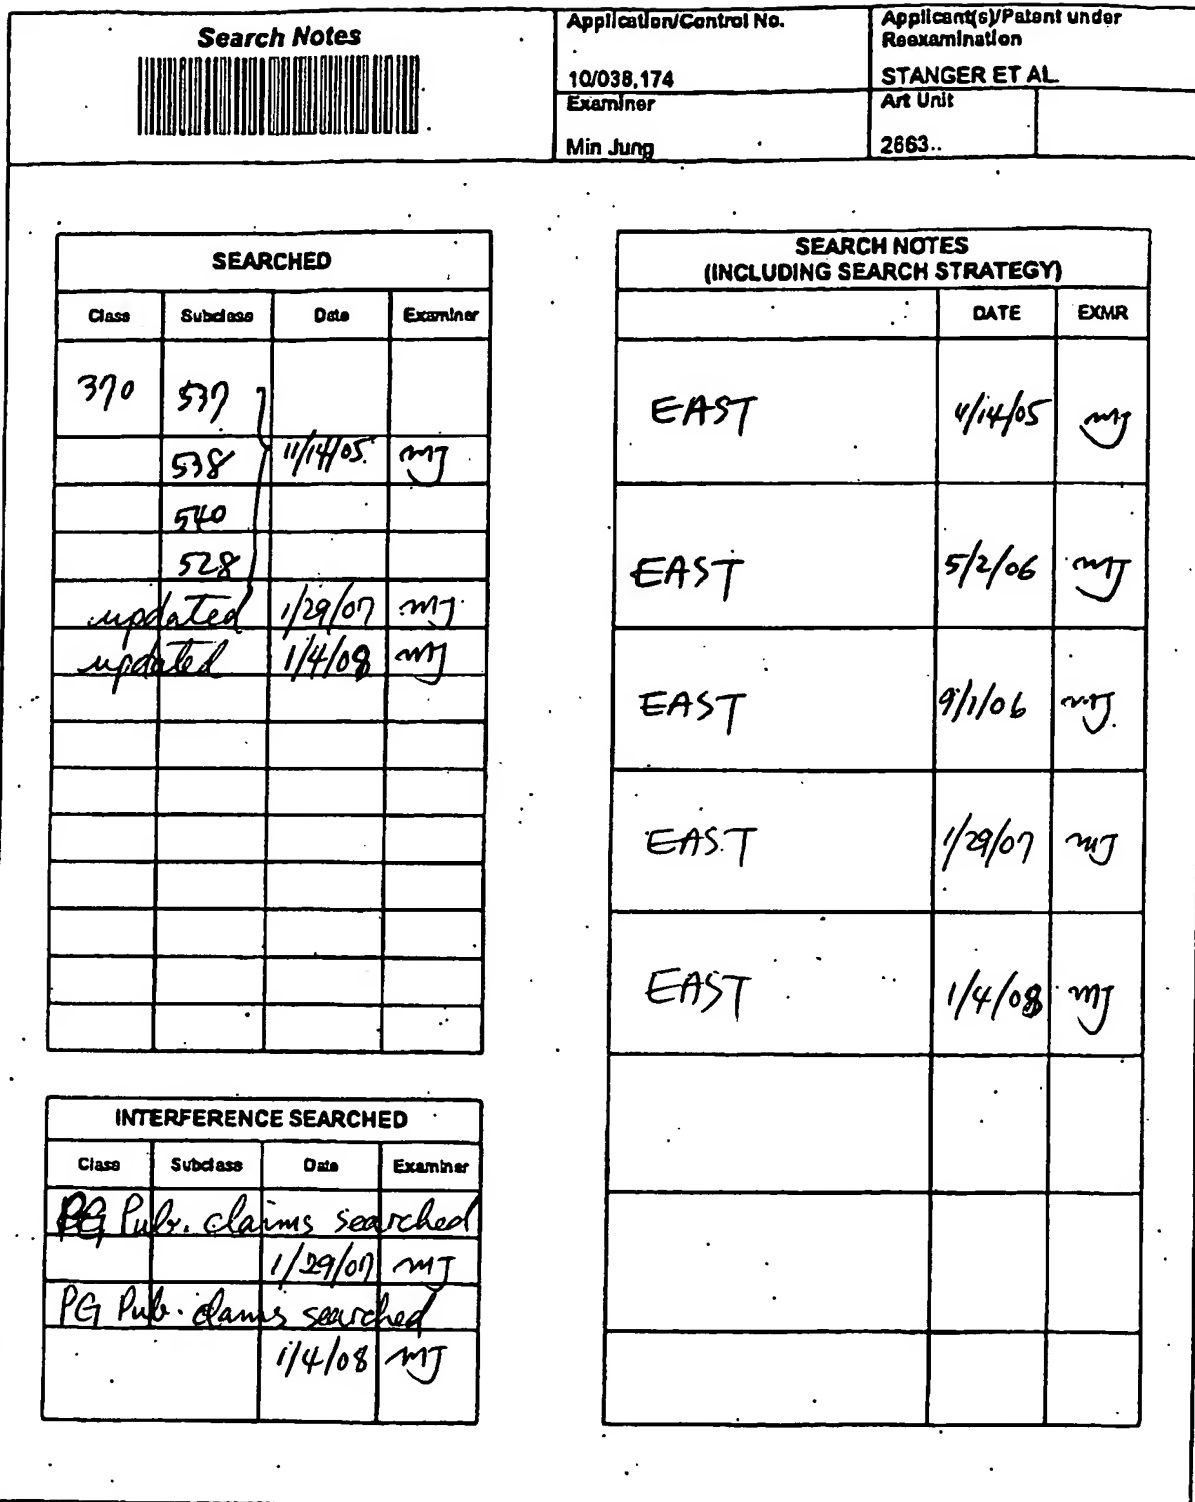 Search Notes
Application/Control No.
10/038,174
Applicant(s)/Patent under
Reexamination
STANGER ET AL.
Examiner
Min Jung
Art Unit
2663
SEARCHED
Class Subclass Date Examiner
370 537
538 11/14/05 MJ
540
528
updated 1/29/07 MJ
updated 1/4/08 MJ
INTERFERENCE SEARCHED
Class Subclass Date Examiner
PG Pub. claims searched
1/29/07 MJ
PG Pub. claims searched
1/4/08 MJ
SEARCH NOTES
(INCLUDING SEARCH STRATEGY)
DATE EXMR
EAST 11/14/05 MJ
EAST 5/2/06 MJ
EAST 9/1/06 MJ
EAST 1/29/07 MJ
EAST 1/4/08 MJ